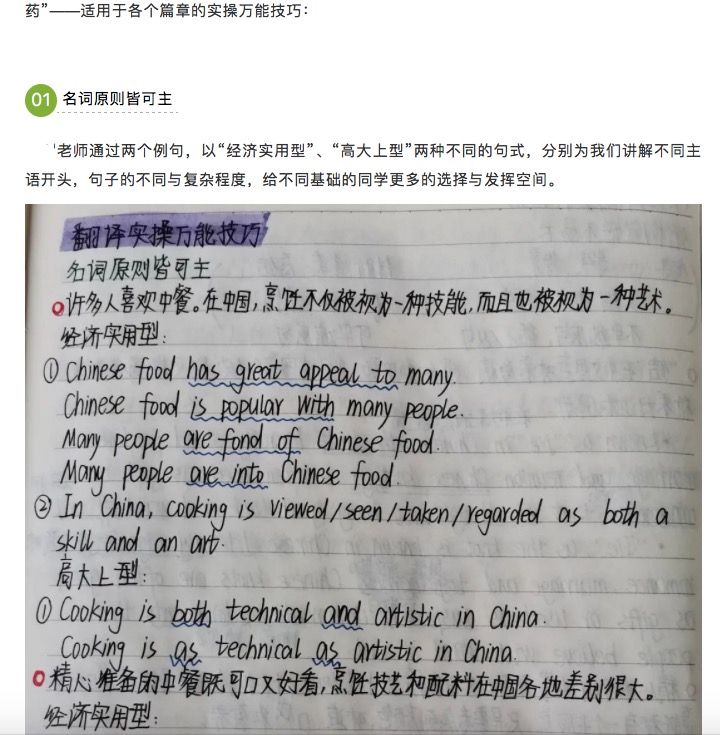 药”——适用于各个篇章的实操万能技巧：
01 名词原则皆可主
老师通过两个例句，以“经济实用型”、“高大上型”两种不同的句式，分别为我们讲解不同主
语开头，句子的不同与复杂程度，给不同基础的同学更多的选择与发挥空间。
翻译实操万能技巧
名词原则皆可主
许多人喜欢中餐。在中国，烹饪不仅被视为一种技能，而且也被视为一种艺术。
经济实用型：
① Chinese food has great appeal to many.
Chinese food is popular with many people.
Many people are fond of Chinese food.
Many people are into Chinese food.
② In China, cooking is viewed/seen/taken/regarded as both a
skill and an art.
高大上型：
① Cooking is both technical and artistic in China.
Cooking is as technical as artistic in China.
精心准备的中餐既可口又好看，烹饪技艺和配料在中国各地差别很大。
经济实用型：